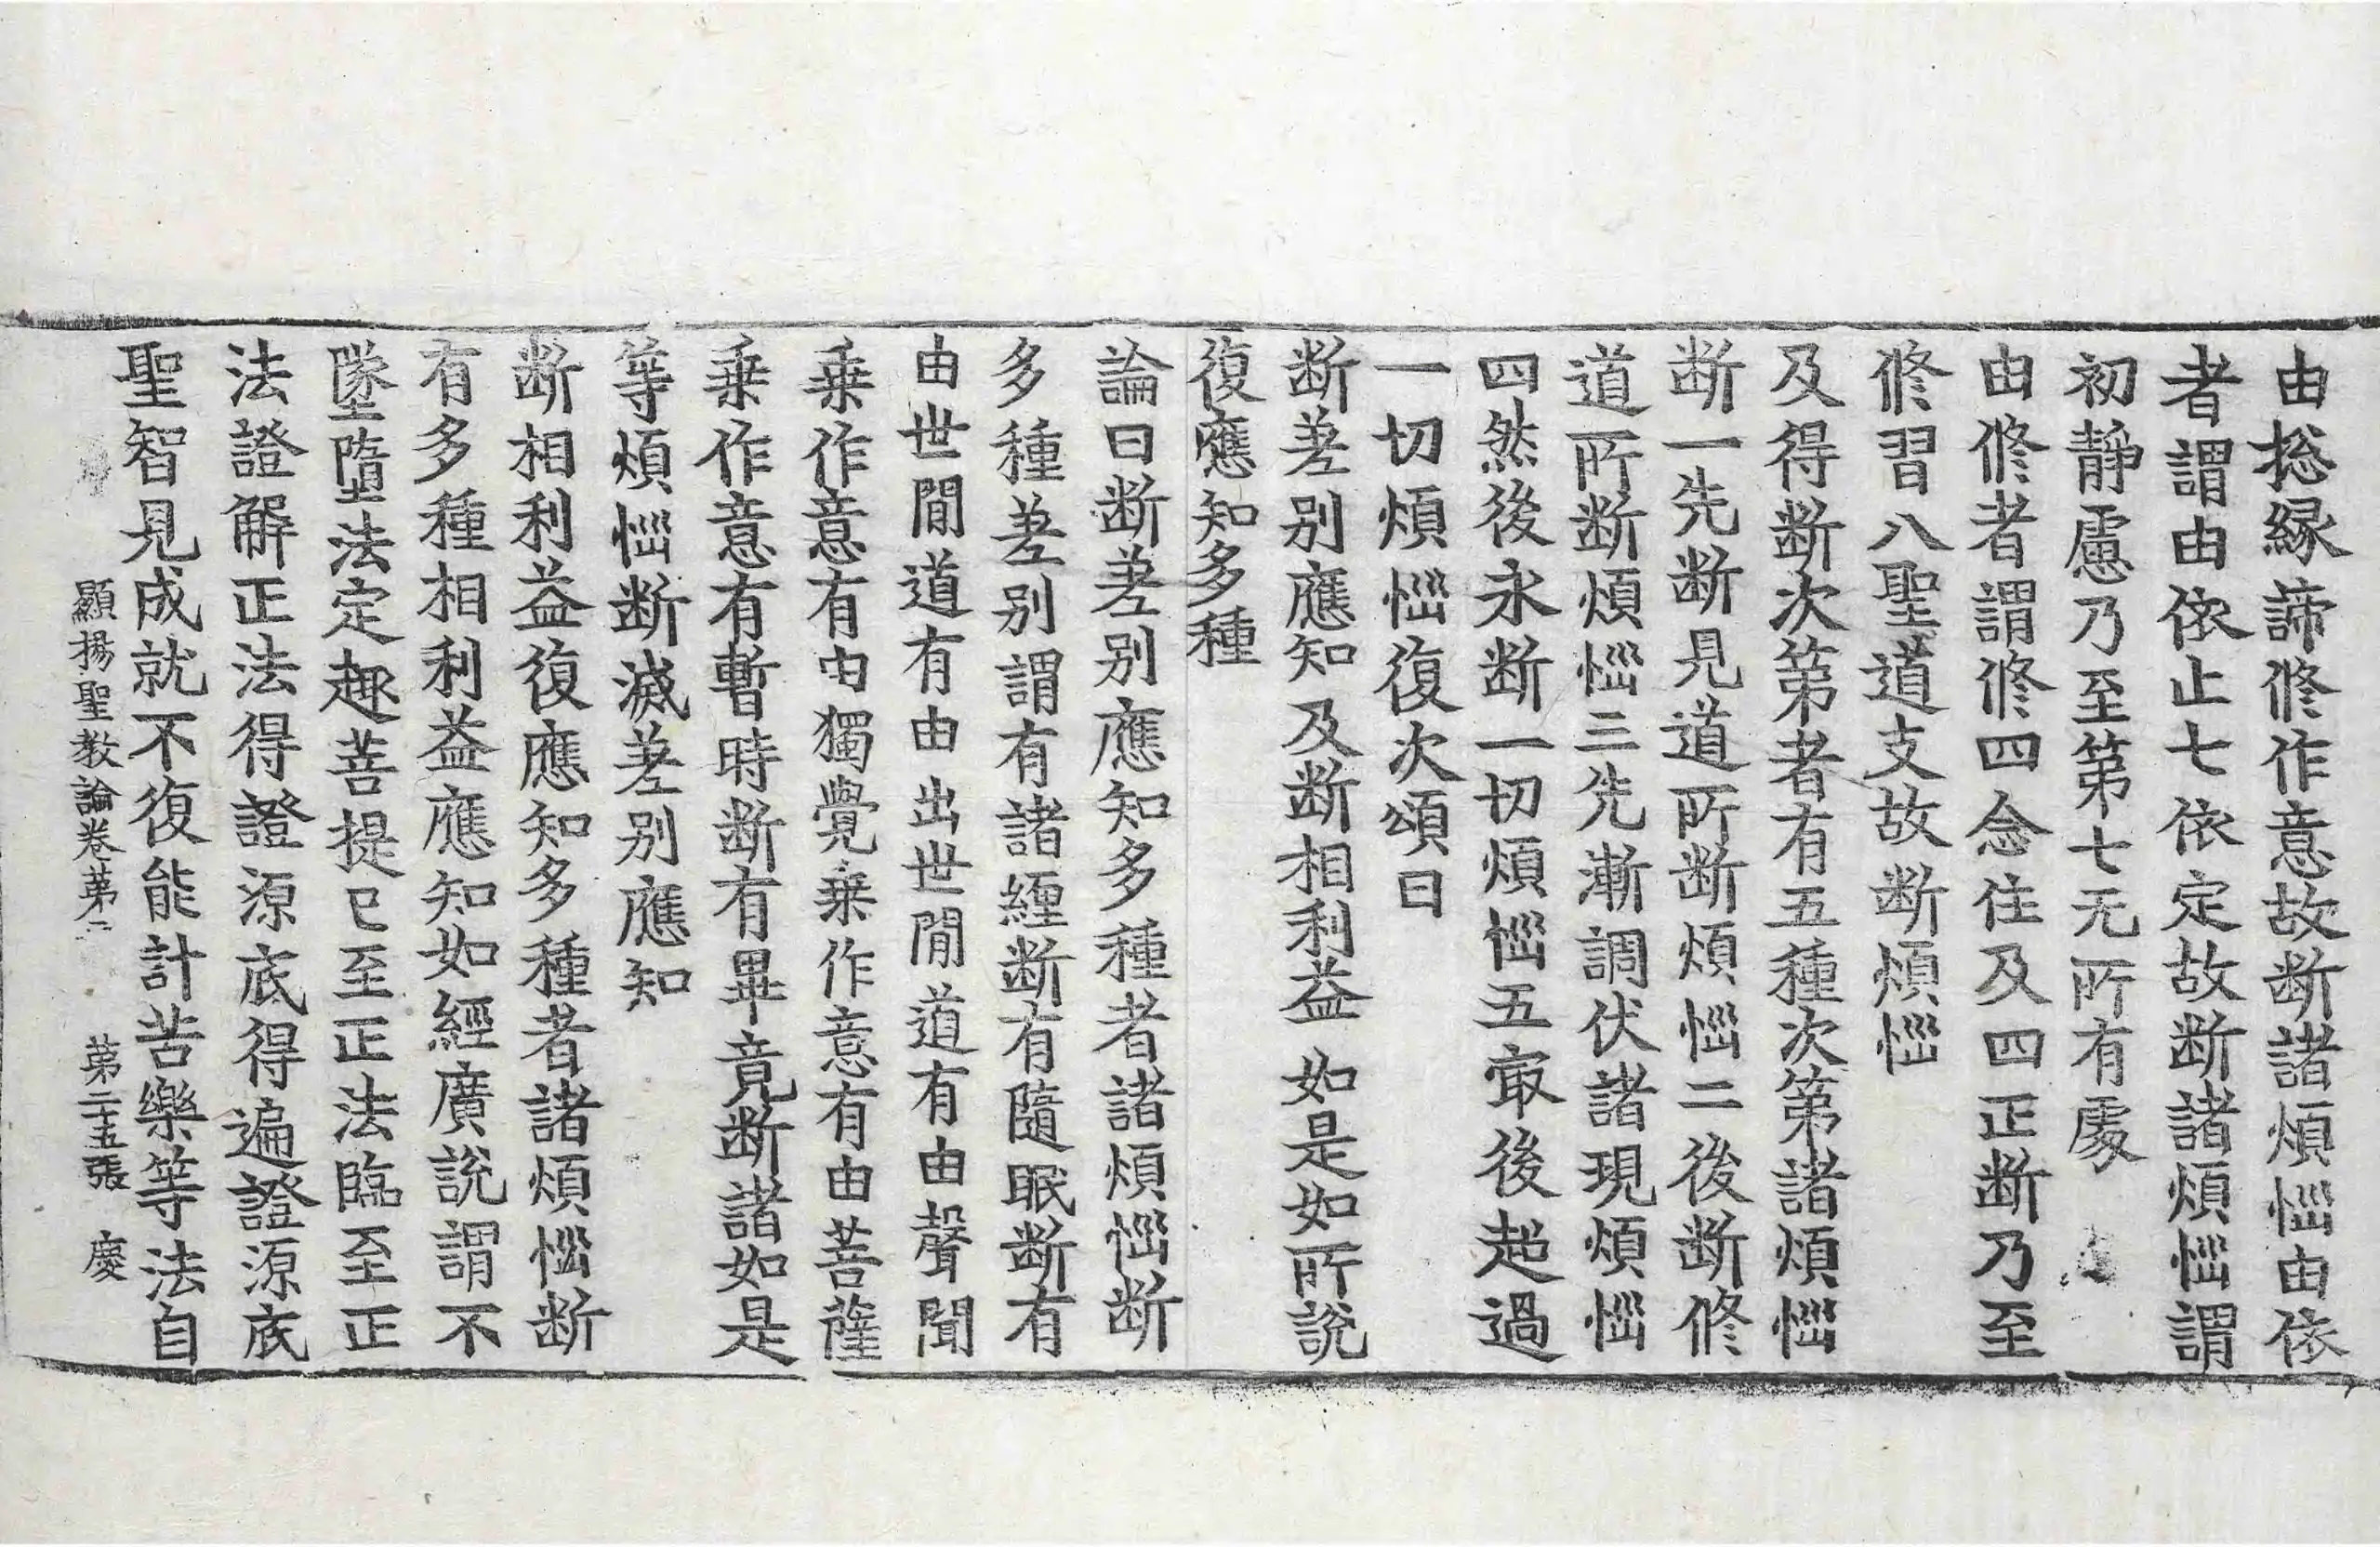 由捴縁諦修作意故断諸煩惱由依
者謂由依止七依定故断諸煩惱謂
初靜慮乃至第七无所有處
由修者謂修四念住及四正断乃至
修習八聖道支故断煩惱
及得断次第者有五種次第諸煩惱
断一先断見道所断煩惱二後断修
道所断煩惱三先漸調伏諸現煩惱
四然後永断一切煩惱五㝡後超過
一切煩惱復次頌曰
断差别應知及断相利益 如是如所說
復應知多種
論曰断差别應知多種者諸煩惱断
多種差别謂有諸纏断有隨眠断有
由世間道有由出世間道有由聲聞
乗作意有由獨覺乗作意有由菩薩
乗作意有暫時断有畢竟断諸如是
等煩惱断滅差别應知
断相利益復應知多種者諸煩惱断
有多種相利益應知如經廣說謂不
墜墮法定趣菩提已至正法臨至正
法證解正法得證源底得遍證源底
聖智見成就不復能計苦樂等法自
顯揚聖教論卷第 第二十五張 慶